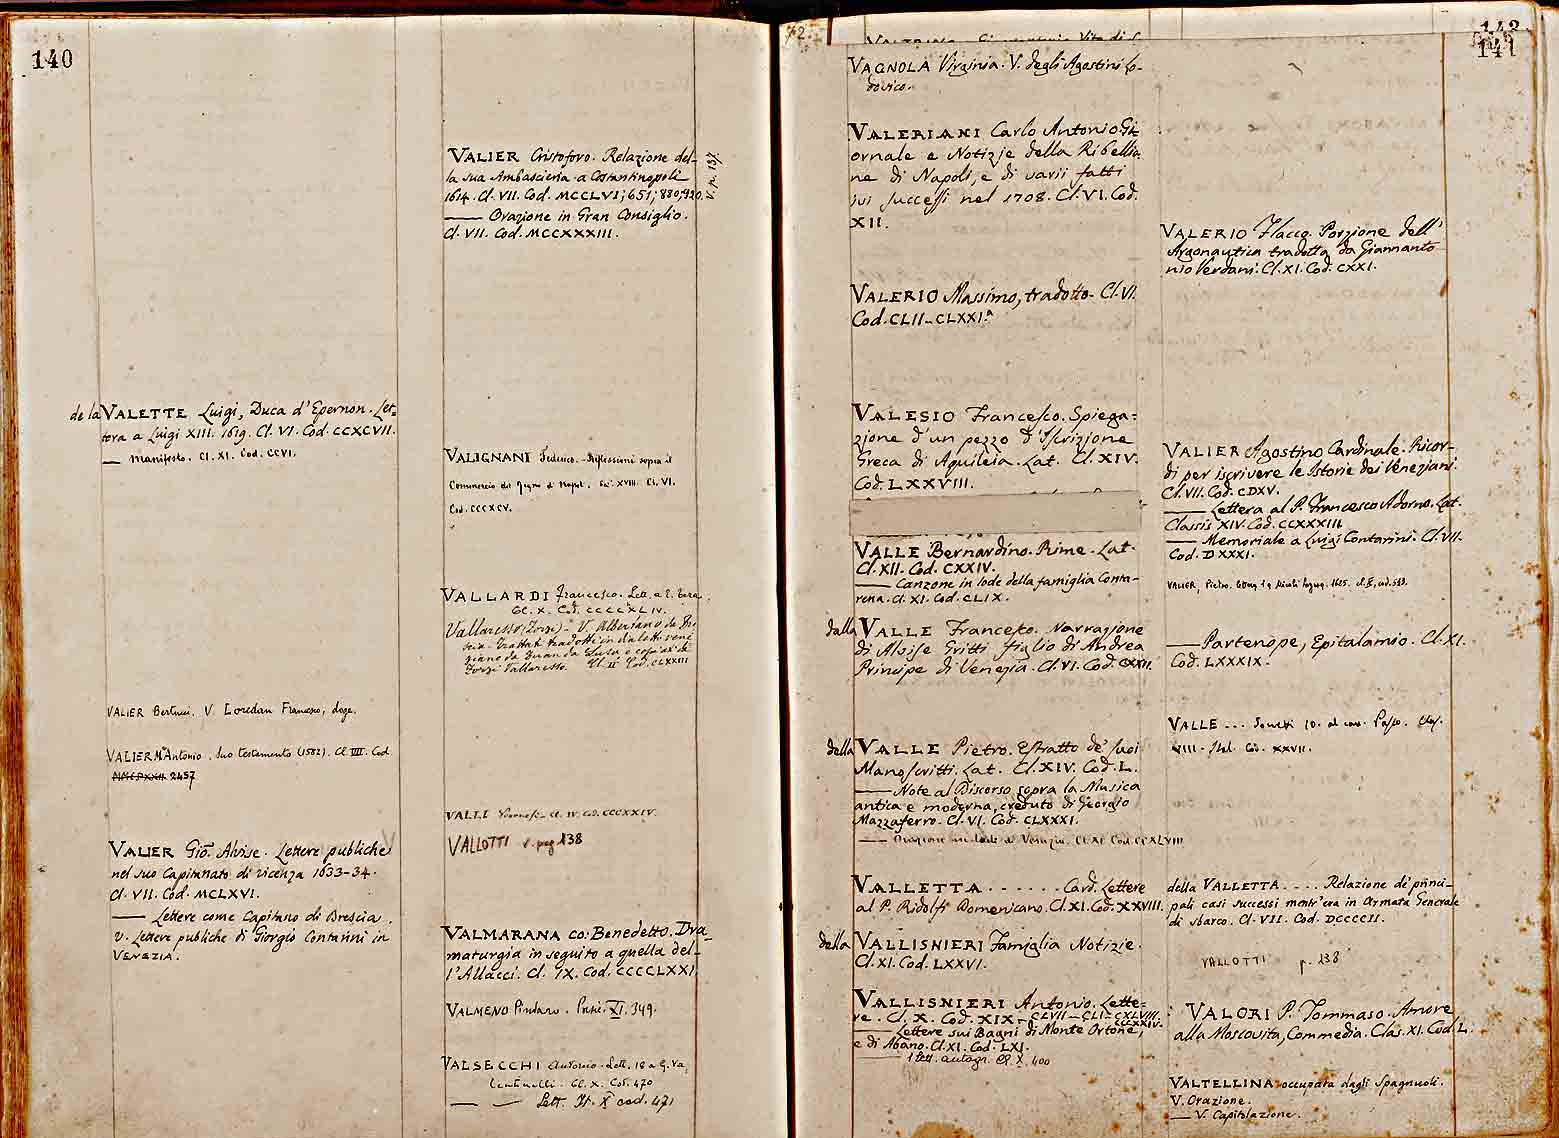 140
de la VALETTE Luigi, Duca d'Epernon. Let=
tera a Luigi XIII. 1619. Cl. VI. Cod. CCXCVII.
— Manifesto. Cl. XI. Cod. CCVI.
VALIER Bertucci. V. Loredan Francesco, doge.
VALIER M. Antonio. Suo testamento (1582). Cl. VII. Cod
2457
VALIER Gio. Alvise. Lettere publiche
nel suo Capitanato di Vicenza 1633-34.
Cl. VII. Cod. MCLXVI.
— Lettere come Capitano di Brescia.
V. Lettere publiche di Giorgio Contarini in
VENEZIA.
VALIER Cristoforo. Relazione del-
la sua Ambascieria a Costantinopoli
1614. Cl. VII. Cod. MCCLVI; 651; 880; 920.
V. p. 137.
— Orazione in Gran Consiglio.
Cl. VII. Cod. MCCXXXIII.
VALIGNANI Federico. Riflessioni sopra il
Commercio del Regno di Napoli. Sec. XVIII. Cl. VI.
Cod. CCCXCV.
VALLARDI Francesco. Lett. a E.
Cl. X. Cod. CCCCXLIV.
Vallaresso (Zorzi) - V. Albertano da Bre
scia. Trattati tradotti in dialetto vene
ziano da e copiati da
Zorzi Vallaresso. Cl. II. Cod. CLXXIII
VALLI Cl. IV. Cod. CCCXXIV.
VALLOTTI v. pag. 138
VALMARANA co: Benedetto. Dra_
maturgia in seguito a quella del-
l'Allacci. Cl. IX. Cod. CCCCLXXI.
VALMENO Pindaro. Poesie. XI. 349.
VALSECCHI Antonio. Lett. 18 a G. Va
lentinelli. Cl. X. Cod. 470
— — Lett. It. X cod. 471
72
142
141
VAGNOLA Virginia. V. degli Agostini Lo-
dovico.
VALERIANI Carlo Antonio. Gi-
ornale e Notizie della Ribellio
ne di Napoli, e di varii fatti
ivi successi nel 1708. Cl. VI. Cod.
XII.
VALERIO Massimo, tradotto. Cl. VI.
Cod. CLII - CLXXI.a
VALESIO Francesco. Spiega=
zione d'un pezzo d'Iscrizione
Greca di Aquileia. Lat. Cl. XIV.
Cod. LXXVIII.
VALLE Bernardino. Rime. Lat.
Cl. XII. Cod. CXXIV.
— Canzone in lode della famiglia Conta-
rena. Cl. XI. Cod. CLIX.
dalla VALLE Francesco. Narrazione
di Aloise Gritti figlio di Andrea
Principe di Venezia. Cl. VI. Cod. CXXII.
della VALLE Pietro. Estratto de' suoi
Manoscritti. Lat. Cl. XIV. Cod. L.
— Note al Discorso sopra la Musica
antica e moderna, creduto di Georgio
Mazzaferro. Cl. VI. Cod. CLXXXI.
— Orazione in lode di Venezia. Cl. XI. Cod. CCXLVIII
VALLETTA . . . . . . Card. Lettere
al P. Ridolfi Domenicano. Cl. XI. Cod. XXVIII.
della VALLISNIERI Famiglia Notizie.
Cl. XI. Cod. LXXVI.
VALLISNIERI Antonio. Lette=
re. Cl. X. Cod. XIX - CLVII - CLI - CXLVIII.
CCCXXIV.
— Lettere sui Bagni di Monte Ortone,
e di Abano. Cl. XI. Cod. LXI.
1 lett. autogr. Cl. X. 400
VALERIO Flacco. Porzione dell'
Argonautica tradotta da Giannanto
nio Verdani. Cl. XI. Cod. CXXI.
VALIER Agostino Cardinale. Ricor-
di per iscrivere le Istorie dei Veneziani.
Cl. VII. Cod. CDXV.
— Lettera al P. Francesco Adorno. Lat.
Classis XIV. Cod. CCXXXIII.
— Memoriale a Luigi Contarini. Cl. VII.
Cod. DXXXI.
VALIER, Pietro.
— Partenope, Epitalamio. Cl. XI.
Cod. LXXXIX.
VALLE ... Sonetti 10. al cav. Clas.
VIII. Ital. Cod. XXVII.
della VALLETTA . . . . Relazione di princi_
pali casi successi mentr'era in Armata Generale
di sbarco. Cl. VII. Cod. DCCCCII.
VALLOTTI p. 138
VALORI P. Tommaso. Amore
alla Moscovita, Commedia. Clas. XI. Cod. L.
VALTELLINA occupata dagli Spagnuoli.
V. Orazione.
— V. Capitolazione.